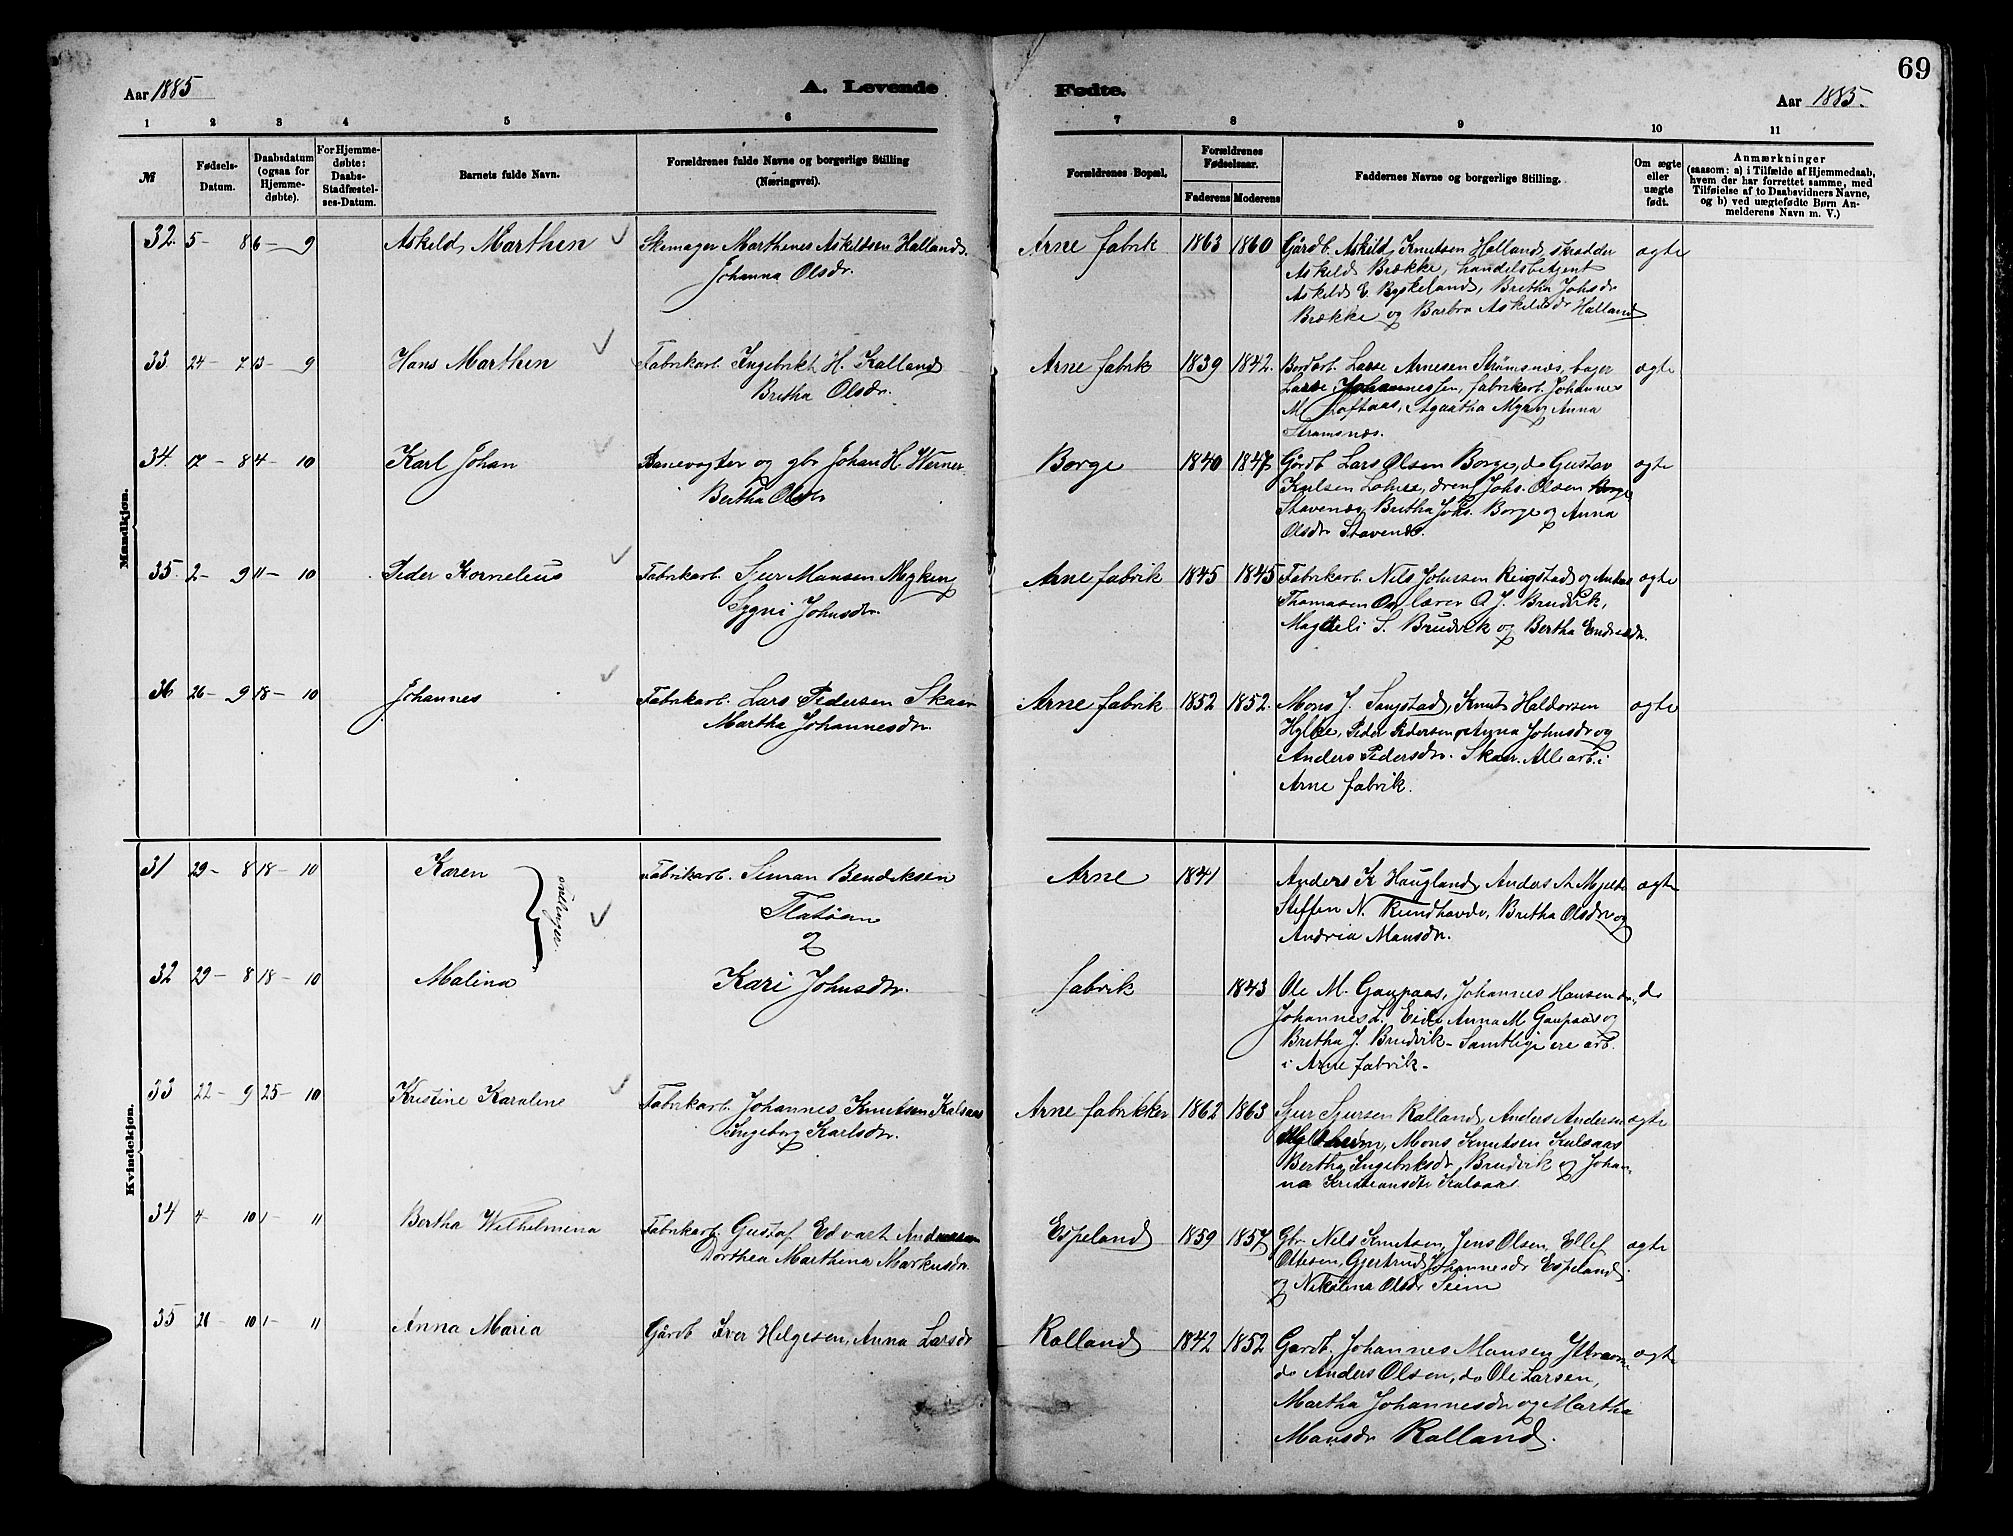 69
Aar 1885
A. Levende
Fødte.
Aar 1885.
1 2 3 4 5 6 7 8 9 10 11
№
Fødsels-
Datum.
Daabsdatum
(ogsaa for
Hjemme-
døbte).
For Hjemme-
døbte:
Daabs-
Stadfæstel-
ses-Datum.
Barnets fulde Navn.
Forældrenes fulde Navne og borgerlige Stilling
(Næringsvei).
Forældrenes Bopæl.
Forældrenes
Fødselsaar.
Faderens Moderens
Faddernes Navne og borgerlige Stilling.
Om ægte
eller
uægte
født.
Anmærkninger
(saasom: a) i Tilfælde af Hjemmedaab,
hvem der har forrettet samme, med
Tilføielse af to Daabsvidners Navne,
og b) ved uægtefødte Børn An-
melderens Navn m. V.)
Mandkjøn.
32. 5 - 8 6 - 9 Askild, Marthen Skomager Marthenes Askildsen Halland
Johanna Olsdr.
Arne fabrik 1863 1860 Gårdb. Askild Knutsen Halland, skrædder ægte
Askild Brække, handelsbetjent
Askild E. Byskeland, Bretha Johsdr
Brække og Barbra Askildsdr Halland
33. 24 - 7 13 - 9 Hans Marthen Fabrikarb. Ingebrikt H. Kalland
Bretha Olsdr.
Arne fabrik 1839 1842. Bordarb. Lasse Arnesen Strømsnæs, bager ægte
Lasse Johannessen, fabrikarb. Johannes
M. Loftaas, Agaatha Myr og Anna
Strømsnæs.
34. 17 - 8 4 - 10 Karl Johan Banevogter og gbr Johan H. Werner
Bertha Olsdr
Borge 1840 1847 Gårdb. Lars Olsen Borge, do Gustav ægte
Knlsen Lohne, dreng Johs. Olsen Borge
Stavenæs, Bertha Johs. Borge og Anna
Olsdr Stavenæs.
35. 2 - 9 11 - 10 Peder Kornelius Fabrikarb. Sjur Mansen Myking
Sygni Johnsdr.
Arne fabrik 1845 1845 Fabrikarb. Nils Johnssen Ringstad og Anders ægte
Thomasen Os, lærer O J. Brudvik,
Magtheli S. Brudvik og Bertha Endresdr.
36 26 - 9 18 - 10 Johannes Fabrikarb. Lars Pedersen Skaar
Martha Johannesdr.
Arne fabrik 1852 1852. Mons J. Saugstad, Knut Haldorsen ægte
Hylke, Peder Pedersen, Anna Johnsdr og
Anders Pedersdr. Skaar. Alle arb. i
Arne fabrik.
Kvindekjøn.
31 29 - 8 18 - 10 Karen Fabrikarb. Siman Bendiksen
Flatøen
Arne 1841 Anders K Haugland, Anders A Mjelde ægte
Steffen N. Rundhovde, Bretha Olsdr og
Andria Mansdr.
tvillinger
og
32 29 - 8 18 - 10 Malina Kari Johnsdr.
fabrik 1843 Ole M. Gaupaas, Johannes Hansen do, do
Johannes L. Eide Anna M Gaupaas og
Bretha J. Brudvik - Samtlige ere arb.
i Arne fabrik -
33 22 - 9 25 - 10 Kristine Karoline Fabrikarb. Johannes Knutsen Kalsaas
Ingeborg Karlsdr.
Arne fabrikker 1862 1863 Sjur Sjursen Kalland, Anders Andersen ægte
Mons Knutsen Kalsaas
Bertha Ingebriksdr Brudvik og Johan-
na Kristiansdtr Kalsaas.
34 4 - 10 1 - 11 Bertha Wilhelmina Fabrikarb. Gustaf Edvart Andersen
Dorthea Marthina Markusdr.
Espeland 1859 1857 Gbr. Nils Knutsen, Jens Olsen, Ellef ægte
Ottesen, Gjertrud Johannesdr Espeland
og Nikolina Olsdr Seim
35 21 - 10 1 - 11 Anna Maria Gårdb Iver Helgesen, Anna Larsdr
Kalland 1842 1852 Gårdb. Johannes Mansen Ytraarne ægte
do Anders Olsen, do Ole Larsen,
Martha Johannesdr og Martha
Mansdr Kalland.